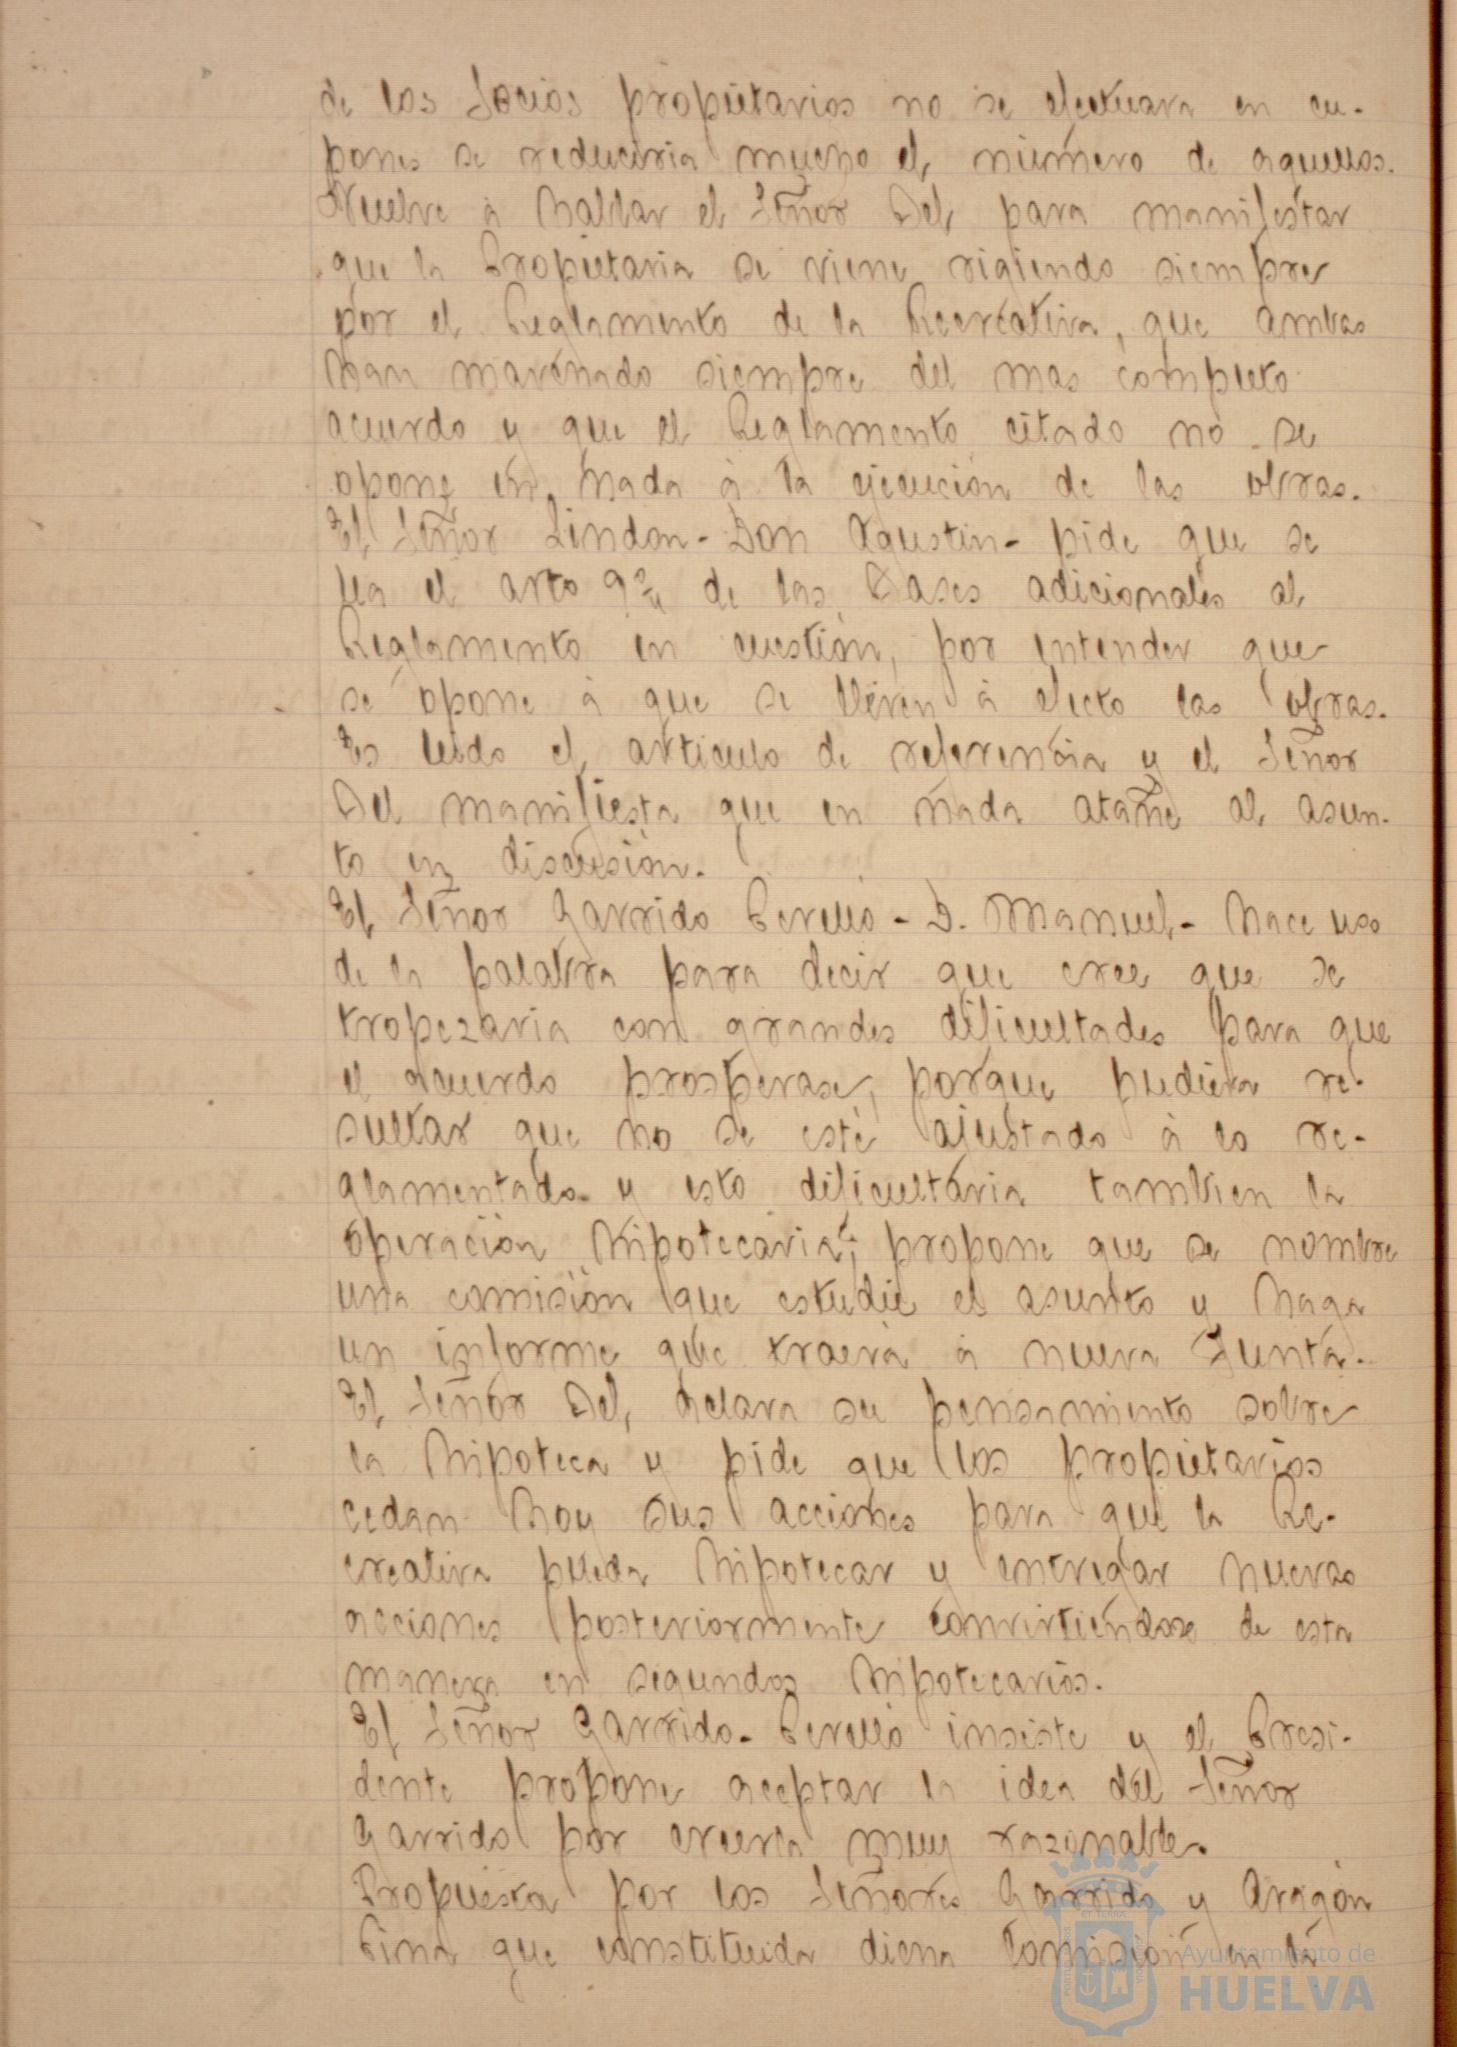 de los Socios propietarios no se efectuara en cu-
pones se reduciria mucho el número de aquellos.
Vuelve á hablar el Señor Del, para manifestar
que la Propietaria se viene rigiendo siempre
por el Reglamento de la Recreativa, que ambas
han marchado siempre del mas completo
acuerdo y que el Reglamento citado no se
opone en nada á la ejecución de las obras.
El Señor Lindon - Don Agustin - pide que se
lea el arto 9º de las Bases adicionales al
Reglamento en cuestión, por entender que
se opone á que se lleven á efecto las obras.
Es leido el articulo de referencia y el Señor
Del manifiesta que en nada atañe al asun-
to en discusión.
El Señor Garrido Perelló - D. Manuel - hace uso
de la palabra para decir que cree que se
tropezaria con grandes dificultades para que
el acuerdo prosperase, porque pudiera re-
sultar que no se esté ajustado á lo re-
glamentado y esto dificultaria tambien la
operación hipotecaria; propone que se nombre
una comisión que estudie el asunto y haga
un informe que traerá á nueva Junta.
El Señor Del, aclara su pensamiento sobre
la hipoteca y pide que los propietarios
cedan hoy sus acciones para que la Re-
creativa pueda hipotecar y entregar nuevas
acciones posteriormente convirtiéndose de esta
manera en segundos hipotecarios.
El Señor Garrido - Perelló insiste y el Presi-
dente propone aceptar la idea del Señor
Garrido por creerla muy razonable.
Propuesta por los Señores Garrido y Aragón
Pina que constituida dicha Comisión en la
Ayuntamiento de
HUELVA